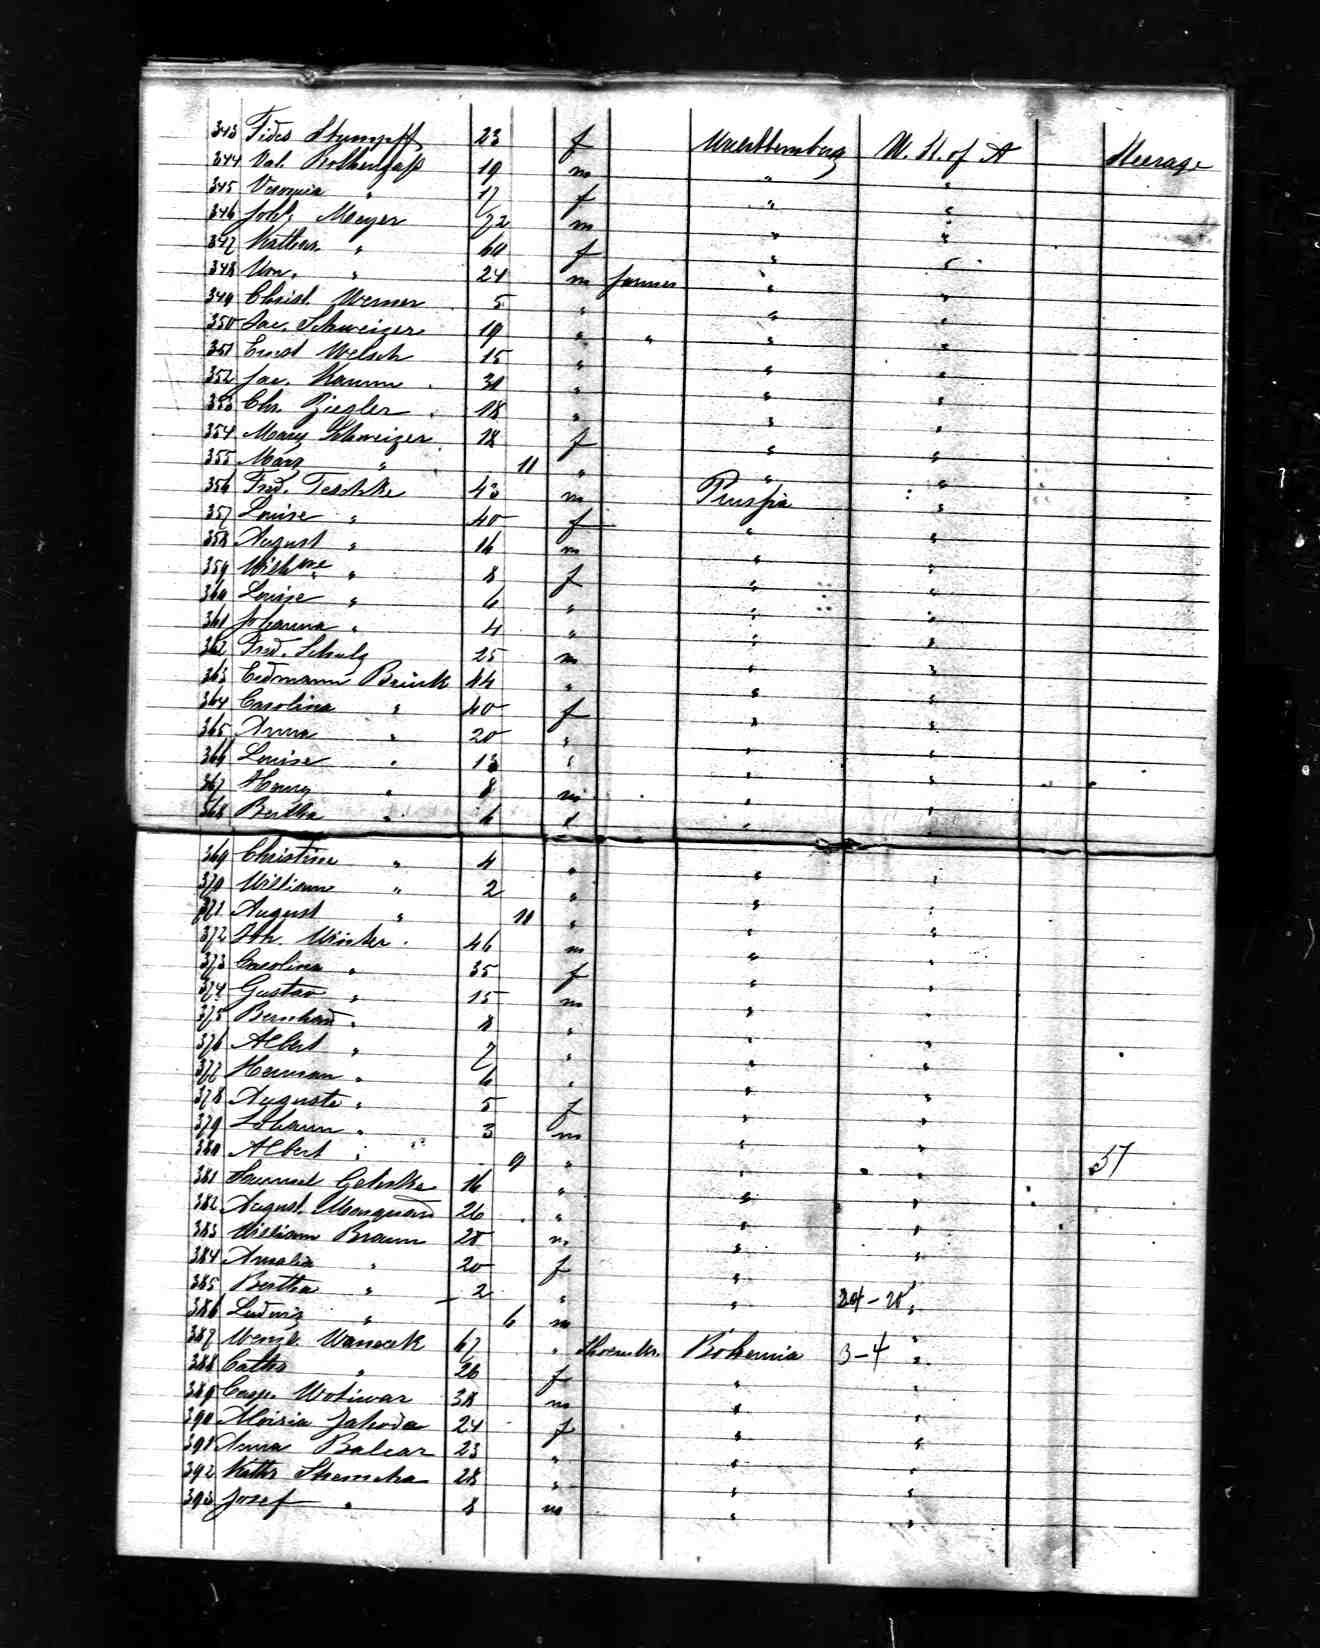 343 Fides Stumpff 23 f Wuerttemberg U. St. of A Steerage
344 Val. Rothengass 19 m " "
345 Veronia " 17 f " "
346 Joh. Meyer 72 m " "
347 Kathar. " 60 f " "
348 Wm. " 24 m farmer " "
349 Christ. Werner 5 " " "
350 Jac. Schweizer 19 " " " "
351 Ernst Welsch 15 " " "
352 Jac. Kamm 30 " " "
353 Chr. Ziegler 18 " " "
354 Mary Schweizer 18 f " "
355 Mary " 11 " " "
356 Frd. Teschke 43 m Prussia "
357 Louise " 40 f " "
358 August " 16 m " "
359 Wilhme " 8 f " "
360 Louise " 6 " " "
361 Johanna " 4 " " "
362 Frd. Schulz 25 m " "
363 Erdmann Brink 44 " " "
364 Carolina " 40 f " "
365 Anna " 20 " " "
366 Louise " 13 " " "
367 Henry " 8 m " "
368 Bertha " 6 f " "
369 Christine " 4 " " "
370 William " 2 " " "
371 August " 11 " " "
372 Joh. Winter 46 m " "
373 Carolina " 35 f " "
374 Gustav " 15 m " "
375 Bernhard " 8 " " "
376 Albert " 7 " " "
377 Herman " 6 " " "
378 Auguste " 5 f " "
379 Johann " 3 m " "
380 Albert " 9 " " " 57
381 Samuel Gehrke 16 " " "
382 August Marquard 26 " " "
383 William Braun 28 m " "
384 Amalia " 20 f " "
385 Bertha " 2 " " "
386 Ludwig " 6 m " 24-20 "
387 Wenzl. Wanecek 67 " Shoemkr. Bohemia 3-4 "
388 Cathr " 26 f " "
389 Casp. Wotiwar 38 m " "
390 Aloisia Jahoda 24 f " "
391 Anna Balcar 23 " " "
392 Kathr 28 " " "
393 Josef " 8 m " "